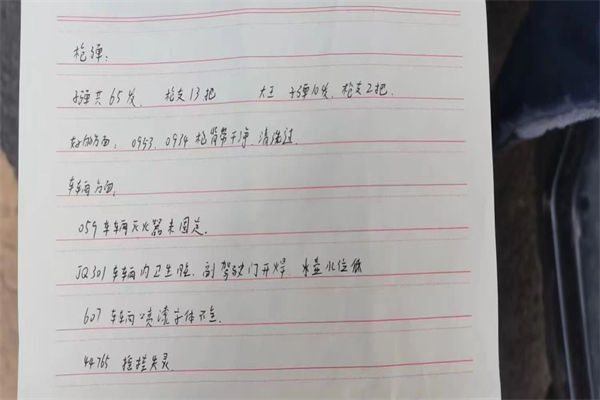 枪弹:
子弹共65发, 枪支13把 大王 子弹10发, 枪支2把.
好的方面: 0943、0934枪背带干净 清洗过
车辆方面,
059车车辆灭火器未固定.
JQ301车车辆内卫生脏, 副驾驶门开焊 水壶水位低
607 车车辆喷漆字体不全.
44765 摇控失灵